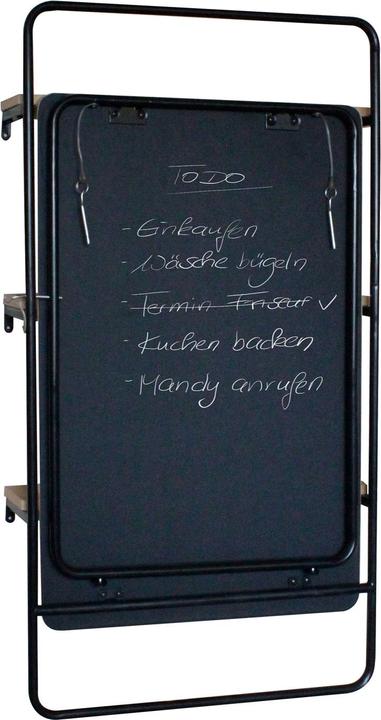 TODO
- Einkaufen
- Wäsche bügeln
- Termin Friseur ✓
- Kuchen backen
- Mandy anrufen